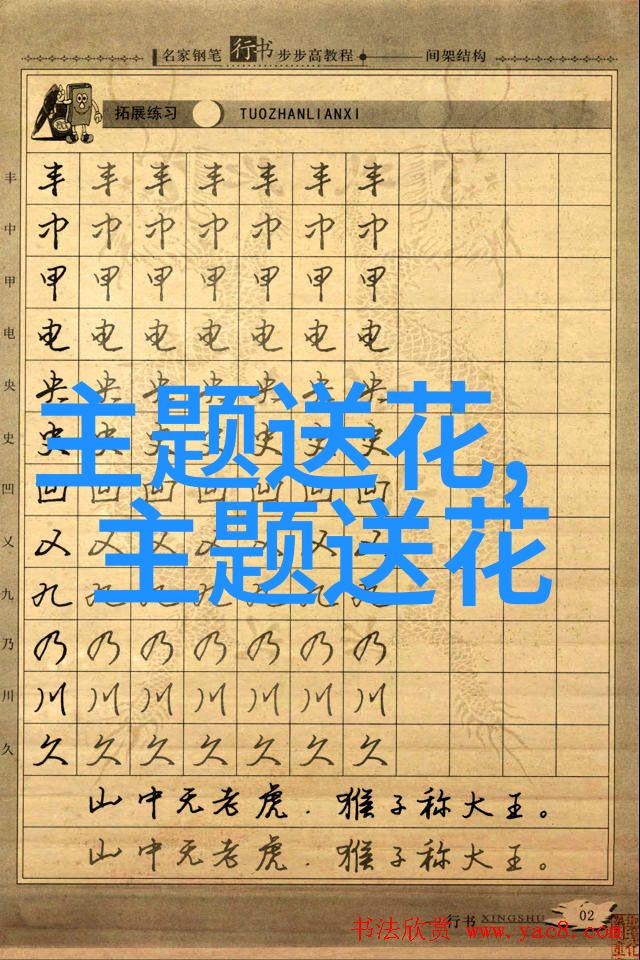 名家钢笔行书步步高教程 间架结构
拓展练习 TUOZHANLIANXI
丰 丰 丰 丰 丰 丰 丰 丰
中 中 中 中 中 中 中 中
甲 甲 甲 甲 甲 甲 甲 甲
电 电 电 电 电 电 电 电
央 央 央 央 央 央 央 央
主题送花，
史 史 史 史 史 史 史 史
凹 凹 凹 凹 凹 凹 凹 凹
主题送花
乂 乂 乂 乂 乂 乂 乂 乂
九 九 九 九 九 九 九 九
乃 乃 乃 乃 乃 乃 乃 乃
川 川 川 川 川 川 川 川
久 久 久 久 久 久 久 久
山中无老虎．猴子称大王。
山中无老虎．猴子称大王。
行书 XINGSHU 02
书法欣赏 www.yac8.com